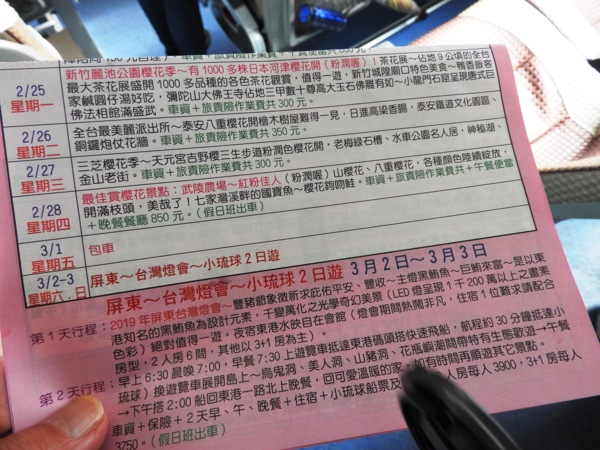 2/25
星期一
新竹麗池公園櫻花季～有1000多株日本河津櫻花開（粉潤喔）茶花展～佔地9公頃的全台
最大茶花展盛開1000多品種的各色茶花觀賞，值得一遊，新竹城隍廟口特色美食～鴨香飯客
家鹹圓仔湯好吃，彌陀山大佛王寺佔地三甲數十尊高大玉石佛雕有如～小龍門石窟呈現唐式巨
佛法相館滿盛武。車資＋旅責險作業費共300元。
2/26
星期二
全台最美麗派出所～泰安八重櫻花開檜木樹屋難得一見，日進高梁香腸，泰安鐵道文化園區、
銅鑼炮仗花牆。車資＋旅責險作業費共350元。
2/27
星期三
三芝櫻花季～天元宮吉野櫻三生步道粉潤色櫻花開，老梅綠石槽、水車公園名人居，神秘湖、
金山老街。車資＋旅責險作業費共300元。
2/28
星期四
最佳賞櫻花景點：武陵農場～紅粉佳人（粉潤喔）山櫻花、八重櫻花，各種顏色陸續綻放，
開滿枝頭，美哉了！七家灣溪畔的國寶魚～櫻花鉤吻鮭。車資＋旅責險作業費共＋午餐便當
＋晚餐餐廳850元。（假日班出車）
3/1
星期五
包車
3/2-3
星期六．日
屏東～台灣燈會～小琉球2日遊
屏東～台灣燈會～小琉球2日遊 3月2日～3月3日
第1天行程：2019年屏東台灣燈會～豐豬爺象徵祈求庇佑平安、豐收～主燈黑鮪魚～巨鮪來富～是以東
港知名的黑鮪魚為設計元素，千變萬化之光學奇幻美景（LED燈呈現1千200萬以上之畫素
色彩）絕對值得一遊。夜宿東港水映自在會館（燈會期間熱鬧非凡，住宿1位難求請配合
房型，2人房6間，其他以3+1房為主）。
第2天行程：早上6:30晨喚7:00，早餐7:30上遊覽車抵達東港碼頭搭快速飛船，航程約30分鐘抵達小
琉球）換遊覽車展開島上～烏鬼洞、美人洞、山豬洞、花瓶嶼潮間帶特有生態歡遊→午餐
→下午搭2:00船回東港一路北上晚餐，回可愛溫暖的家。如有時間再順遊其它景點。
車資＋保險＋2天早、午、晚餐＋住宿＋小琉球船票及 人房每人3900，3+1房每人
3750。（假日班出車）